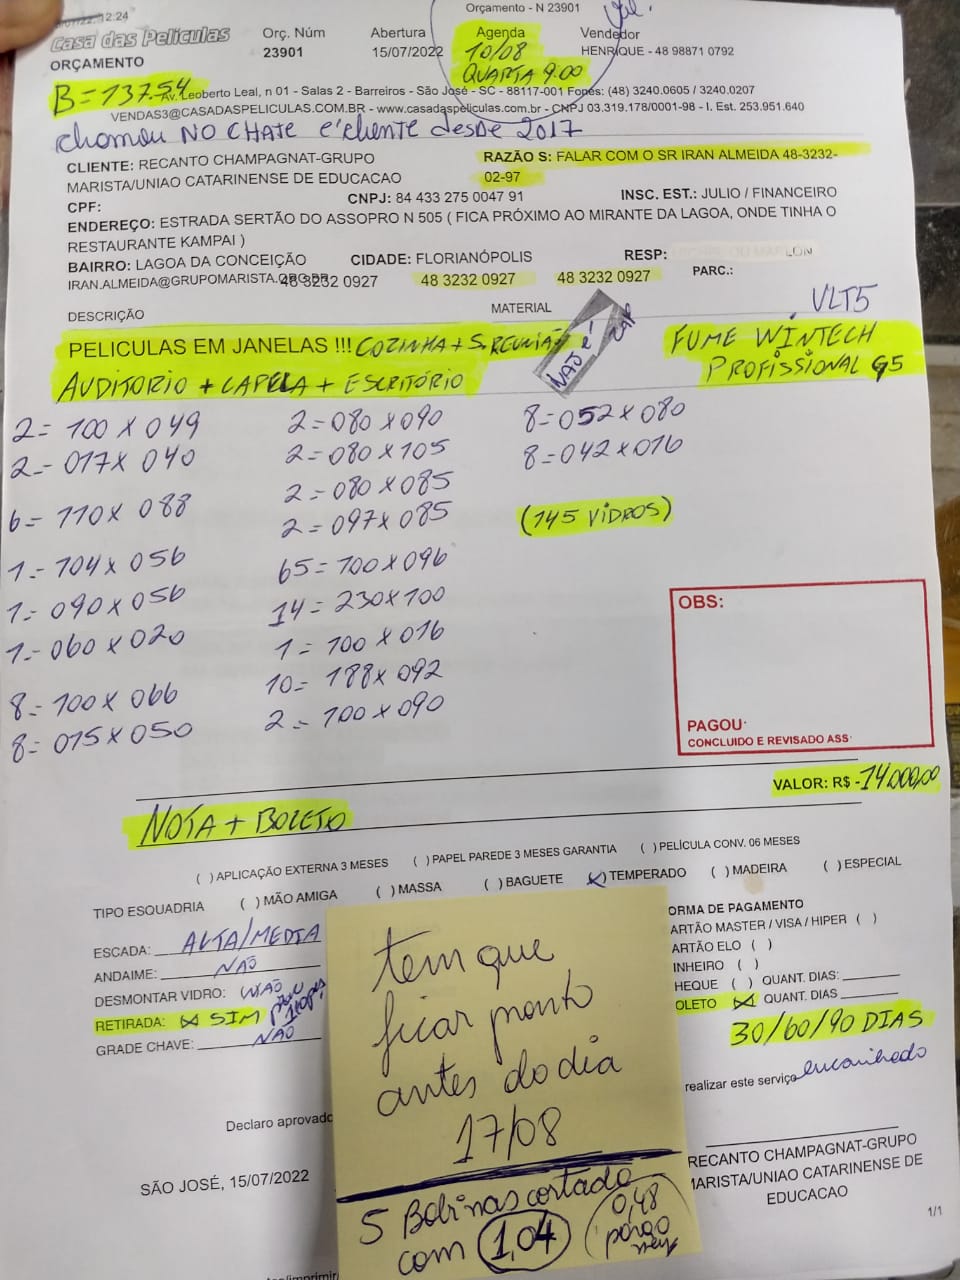 Orçamento - N 23901
12:24
Casa das Películas
ORÇAMENTO
Orç. Núm
23901
Abertura
15/07/2022
Agenda
10/08
QUARTA 9:00
Vendedor
HENRIQUE - 48 98871 0792
B=137.54
Av. Leoberto Leal, n 01 - Salas 2 - Barreiros - São José - SC - 88117-001 Fones: (48) 3240.0605 / 3240.0207
VENDAS3@CASADASPELICULAS.COM.BR - www.casadaspeliculas.com.br - CNPJ 03.319.178/0001-98 - I. Est. 253.951.640
chamou NO CHATE é cliente desde 2017
CLIENTE: RECANTO CHAMPAGNAT-GRUPO
MARISTA/UNIAO CATARINENSE DE EDUCACAO
RAZÃO S: FALAR COM O SR IRAN ALMEIDA 48-3232-
02-97
CPF:
CNPJ: 84 433 275 0047 91
INSC. EST.: JULIO / FINANCEIRO
ENDEREÇO: ESTRADA SERTÃO DO ASSOPRO N 505 ( FICA PRÓXIMO AO MIRANTE DA LAGOA, ONDE TINHA O
RESTAURANTE KAMPAI )
BAIRRO: LAGOA DA CONCEIÇÃO
CIDADE: FLORIANÓPOLIS
RESP:
IRAN.ALMEIDA@GRUPOMARISTA.ORG.BR
48 3232 0927
48 3232 0927
48 3232 0927
PARC.:
DESCRIÇÃO
MATERIAL
VLT5
PELICULAS EM JANELAS !!! COZINHA + S. REUNIÃO
AUDITORIO + CAPELA + ESCRITÓRIO
NÃO é
FUME WINTECH
PROFISSIONAL G5
2= 100 x 049
2= 017 x 040
6= 110 x 088
1= 104 x 056
1= 090 x 056
1= 060 x 020
8= 100 x 066
8= 015 x 050
2= 080 x 090
2= 080 x 105
2= 080 x 085
2= 097 x 085
65= 100 x 096
14= 230 x 100
1= 100 x 016
10= 188 x 092
2= 100 x 090
8= 052 x 080
8= 042 x 016
(145 VIDROS)
OBS:
PAGOU:
CONCLUIDO E REVISADO ASS:
VALOR: R$ -14.000,00
NOTA + BOLETO
( ) APLICAÇÃO EXTERNA 3 MESES ( ) PAPEL PAREDE 3 MESES GARANTIA ( ) PELÍCULA CONV. 06 MESES
TIPO ESQUADRIA ( ) MÃO AMIGA ( ) MASSA ( ) BAGUETE (x) TEMPERADO ( ) MADEIRA ( ) ESPECIAL
ESCADA: ALTA/MEDIA
ANDAIME: NÃO
DESMONTAR VIDRO: NÃO
RETIRADA: (x) SIM
GRADE CHAVE: NÃO
ORMA DE PAGAMENTO
ARTÃO MASTER / VISA / HIPER ( )
ARTÃO ELO ( )
INHEIRO ( )
HEQUE ( ) QUANT. DIAS:
OLETO (x) QUANT. DIAS
30/60/90 DIAS
tem que
ficar pronto
antes do dia
17/08
5 Bobinas cortado
com 1,04
0,48
realizar este serviço
Declaro aprovado
SÃO JOSÉ, 15/07/2022
RECANTO CHAMPAGNAT-GRUPO
MARISTA/UNIAO CATARINENSE DE
EDUCACAO
1/1